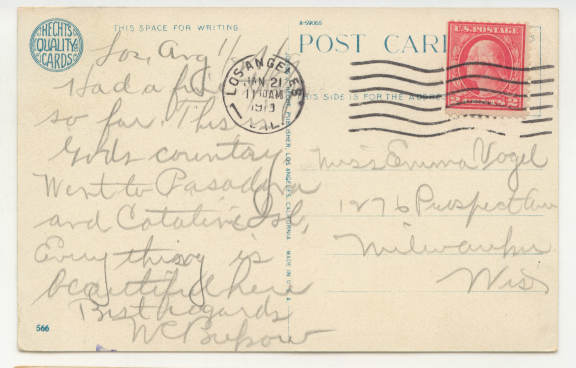 HECHTS
QUALITY
CARDS
THIS SPACE FOR WRITING
A-59065
POST CARD
U.S. POSTAGE
2 CENTS 2
LOS ANGELES
JAN 21
11 30 AM
CAL.
THIS SIDE IS FOR THE ADDRESS
PUBLISHER, LOS ANGELES, CALIFORNIA
MADE IN U.S.A.
Los Ang
Had a
so far. This
Gods country
Went to Pasadena
and Cataline Isl,
Everything is
beautiful here
Best regards
Miss Emma Vogel
1276 Prospect Av
Milwaukee
Wis
566